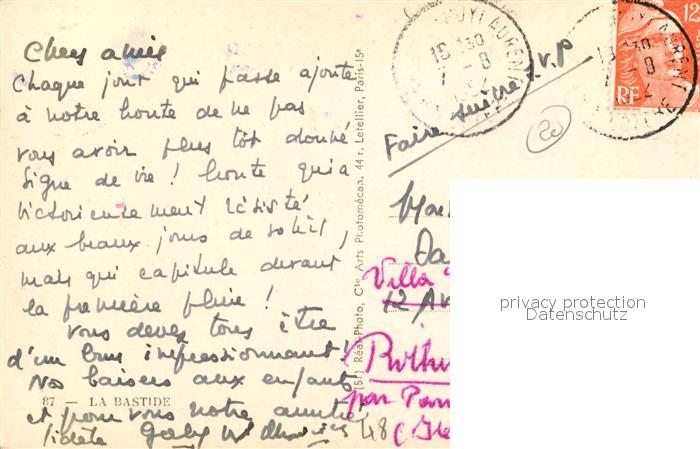 Chers amis
Chaque jour qui passe ajoute
à notre honte de ne pas
vous avoir plus tôt donné
signe de vie ! honte qui a
victorieusement résisté
aux beaux jours de soleil,
mais qui capitule devant
la première pluie !
Vous devez tous être
d'un brun impressionnant !
Nos baisers aux enfants
87 — LA BASTIDE
et pour vous notre amitié
fidèle Gaby
48
(51) Réal-Photo, Cie Arts Photomécan. 44 r. Letellier, Paris-15e
PUYLAURENT
15 30
8
Faire suivre S.V.P
20
12
RF
Villa
12 Av
par
privacy protection
Datenschutz